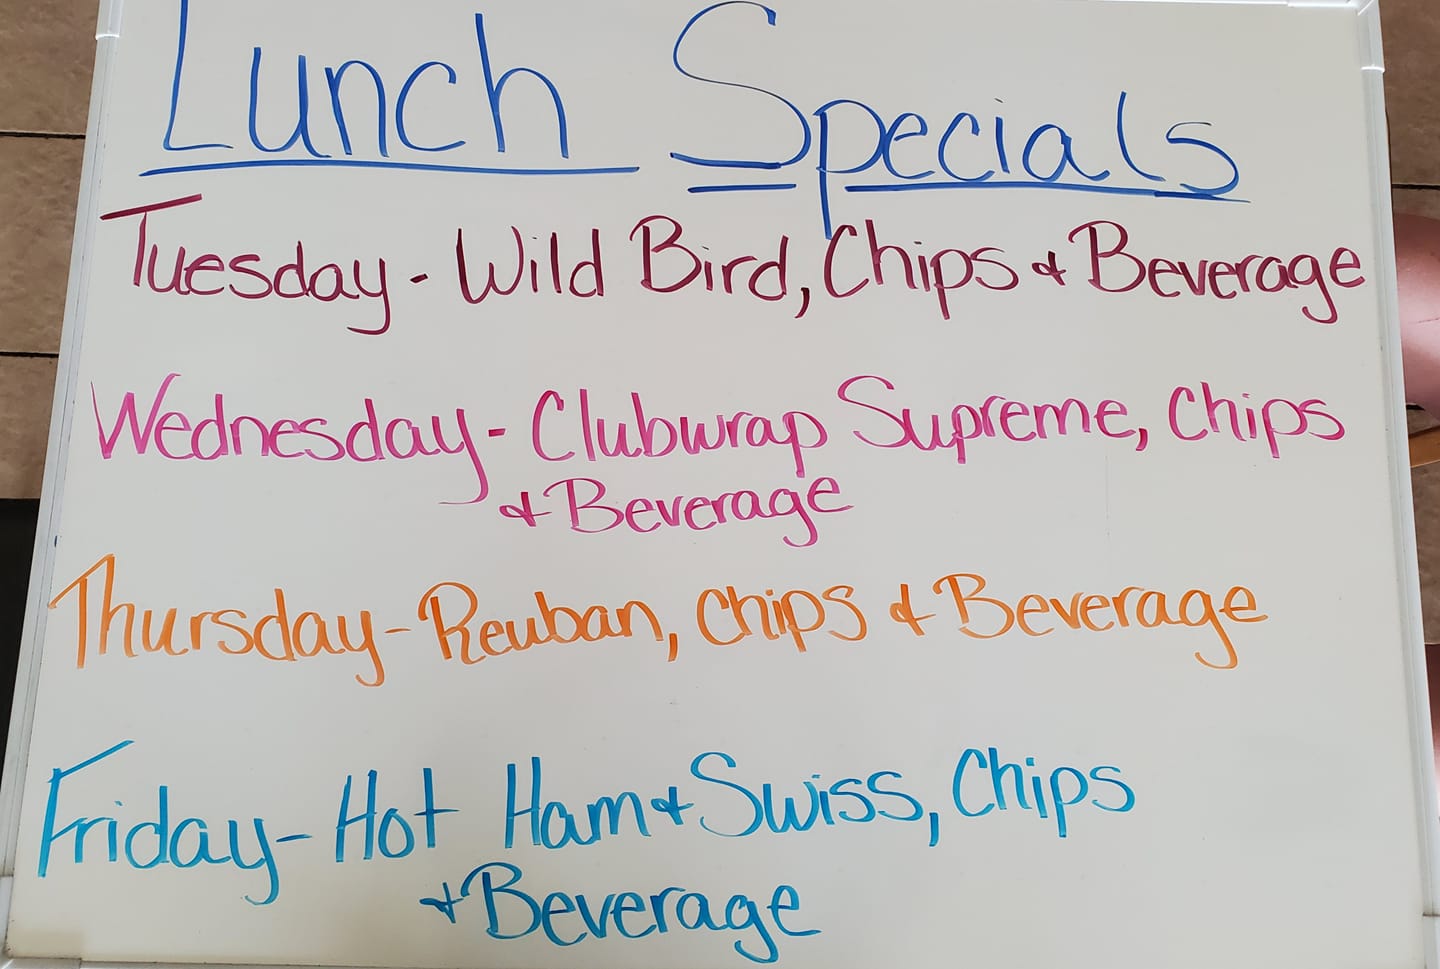 Lunch Specials
Tuesday - Wild Bird, Chips & Beverage
Wednesday - Clubwrap Supreme, Chips
& Beverage
Thursday - Reuban, Chips & Beverage
Friday - Hot Ham & Swiss, Chips
& Beverage